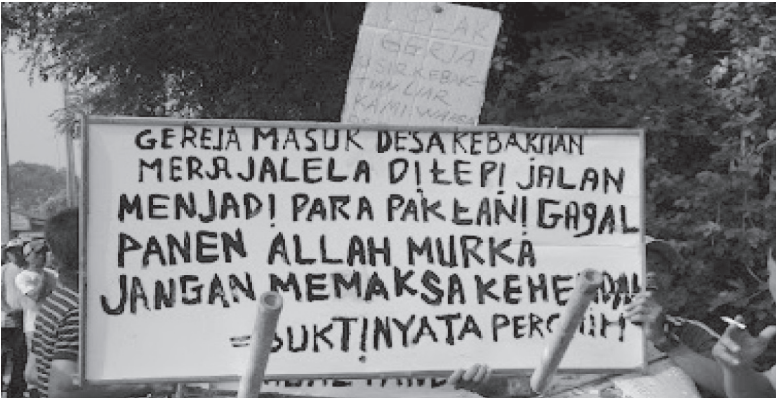 TOLAK
GERJA
USIR KEBAK-
TIAN LIAR
KAMI WARGA
GEREJA MASUK DESA KEBAKTIAN
MERAJALELA DITEPI JALAN
MENJADI PARA PAKTANI GAGAL
PANEN ALLAH MURKA
JANGAN MEMAKSA KEHENDAK
=BUKTI NYATA